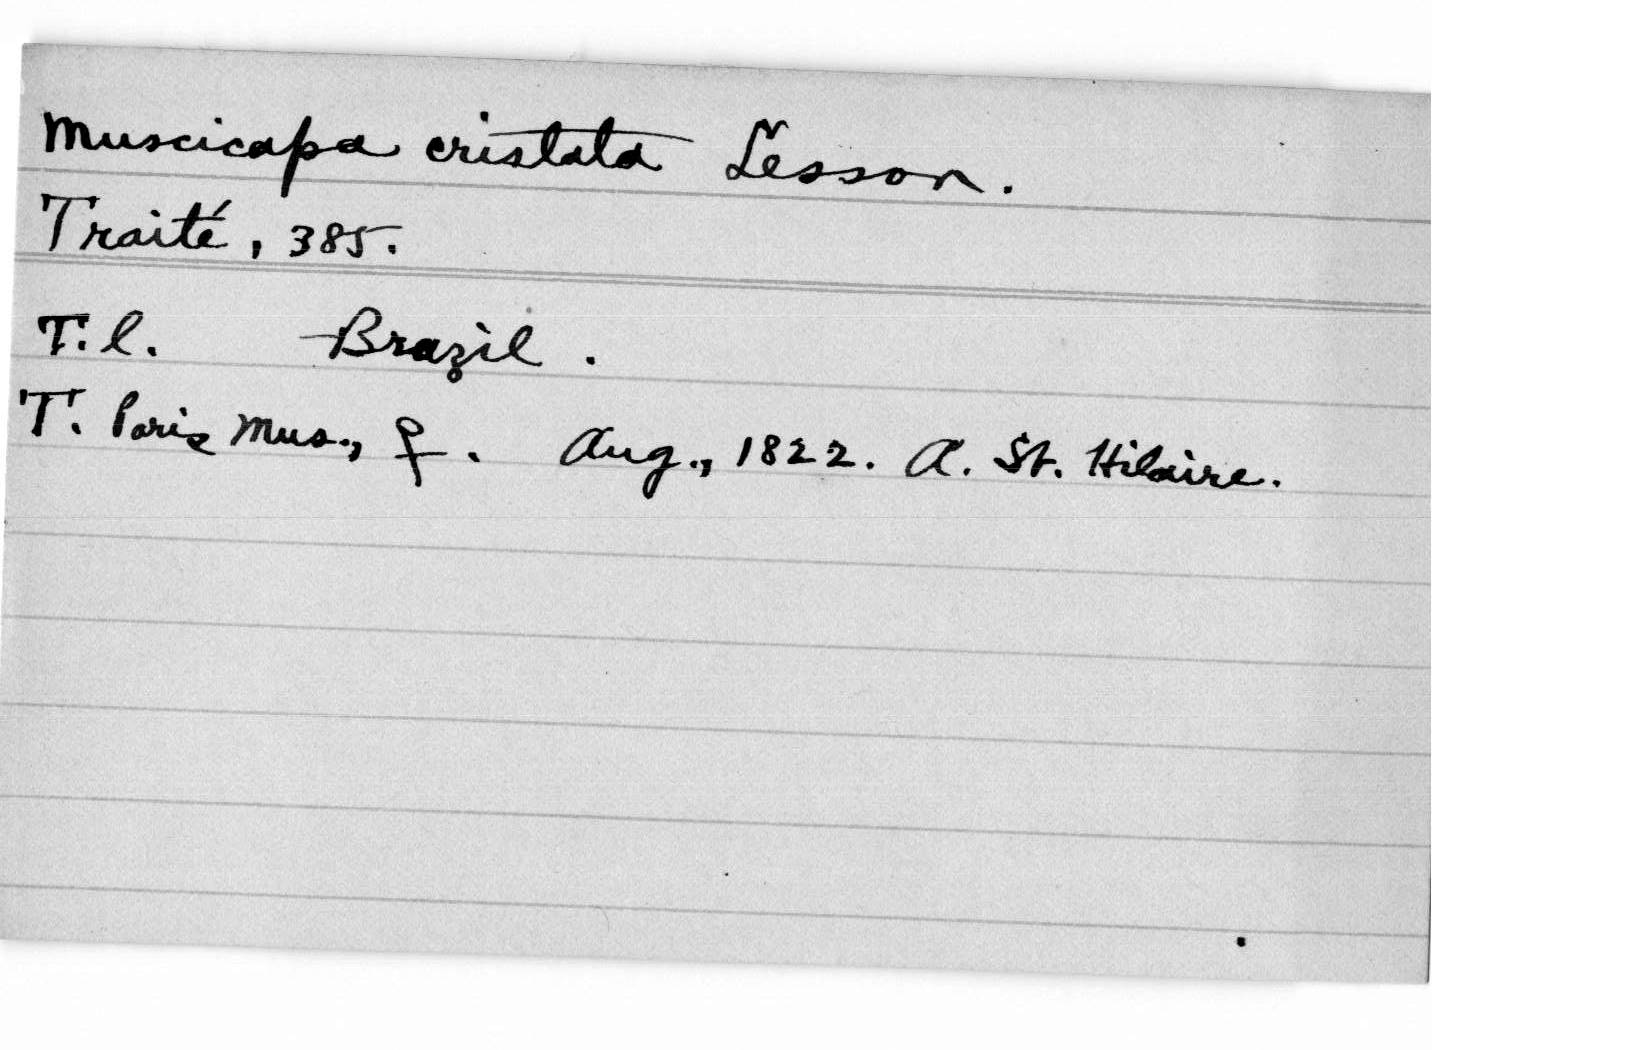 Muscicapa cristata Lesson.
Traité, 385.
T.l. Brazil.
T. Paris Mus., ♀. Aug., 1822. A. St. Hilaire.